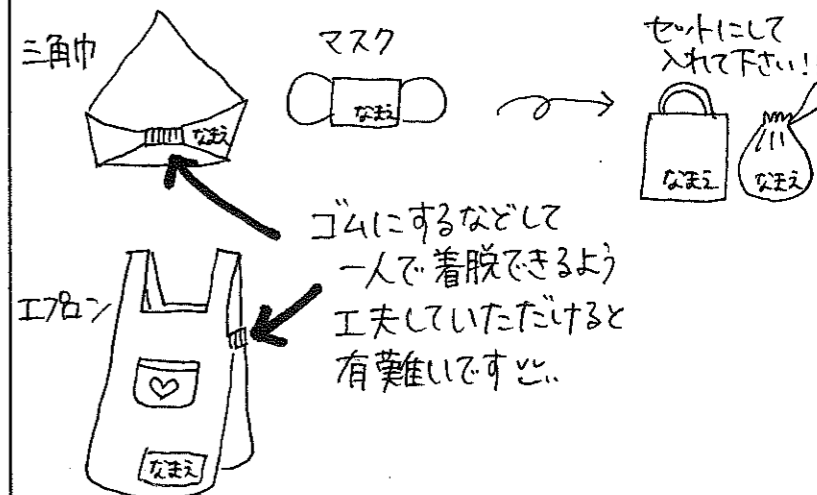 三角巾
なまえ
マスク
なまえ
セットにして
入れて下さい!
なまえ
なまえ
ゴムにするなどして
一人で着脱できるよう
工夫していただけると
有難いです
エプロン
なまえ